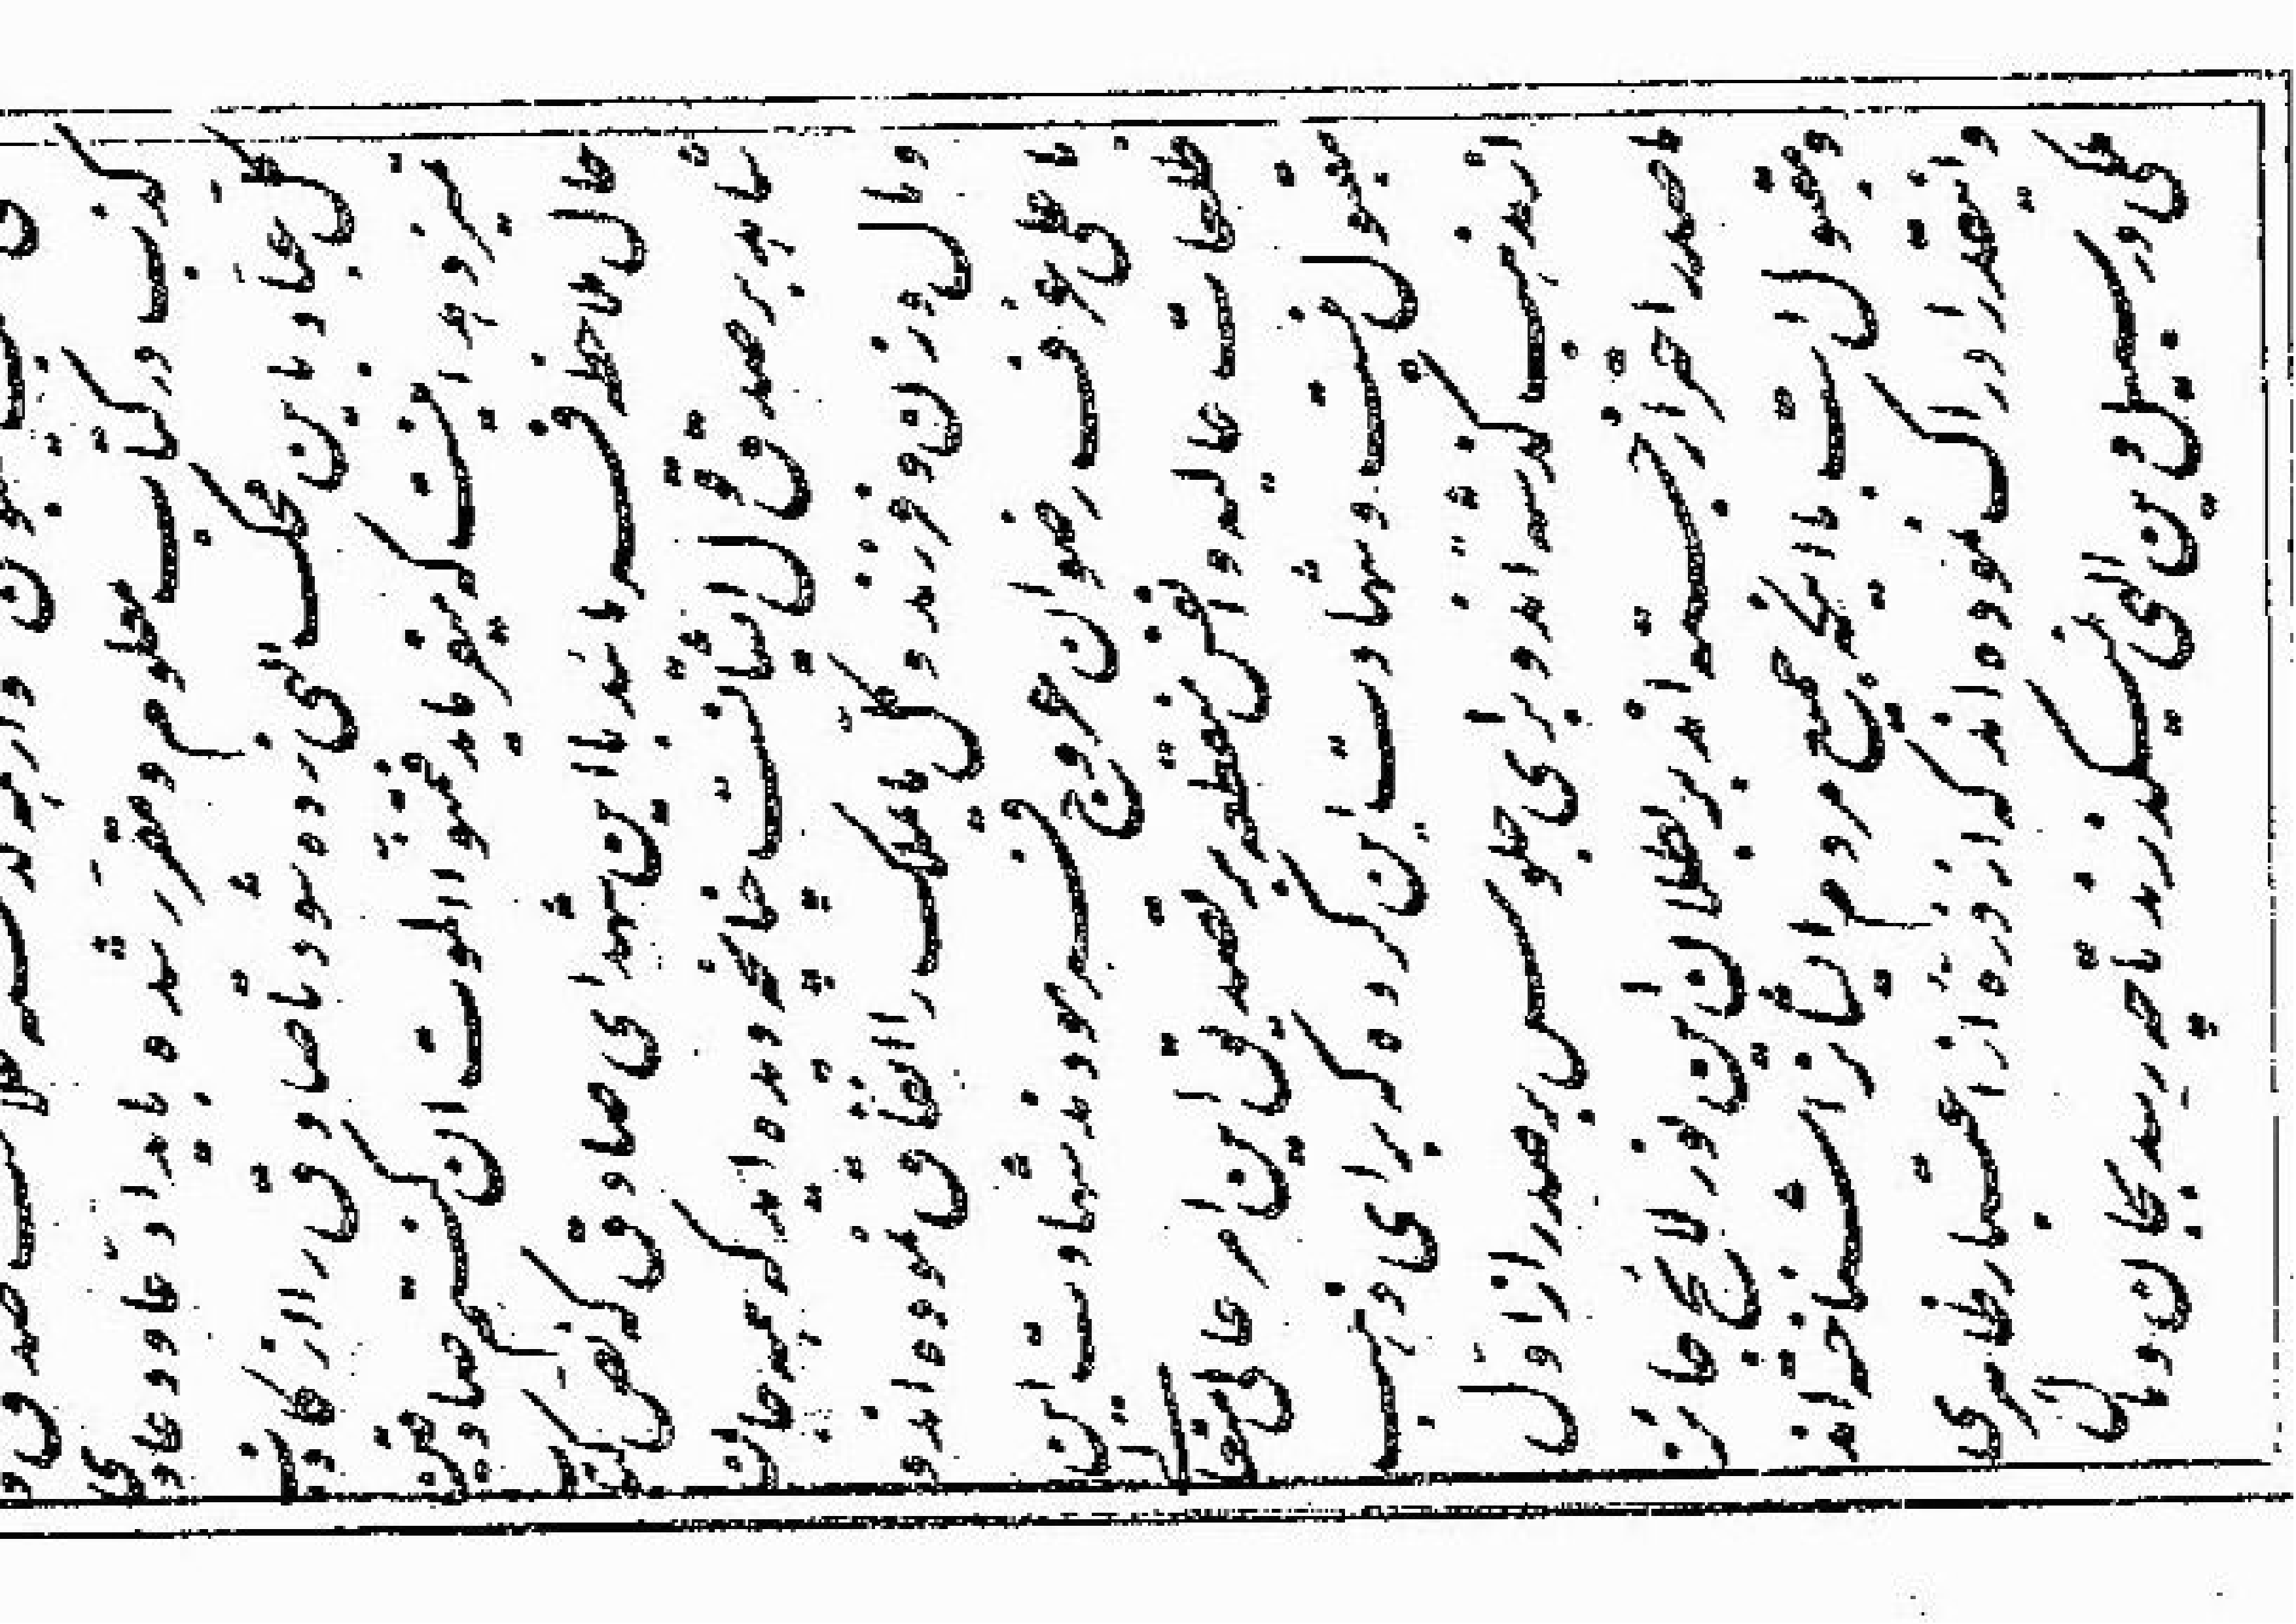 کل عباد باین محک الهی زده شود تا صادق را از کاذب
تمیز دهد اینست که میفرماید فتمنوا الموت ان کنتم صادقین
حال ملاحظه فرمائید با این شهدای صادق که نص کتاب
شاهد بر صدق قول ایشانست چنانچه دیده اید که همه جان
و مال و زن و فرزند و کل ما یملک را انفاق نموده اند و
باعلی غرف رضوان عروج فرمودند شهادت این
طلعات عالیه و انفس منقطعه بر تصدیق این امر عالی متعالی
مقبول نیست و شهادت این گروه که برای ذهب
از مذهب گذشته اند و برای جلوس بر صدر از اول
ما صدر احتراز جسته اند بر بطلان این نور لائح جائز
و مقبول است با اینکه جمیع مردم ایشان را شناخته اند
و اینقدر ادراک نموده اند که از ذره از اعتبار ظاهری
ملکی در سبیل دین الهی نمیگذرند تا چه رسد بجان و مال